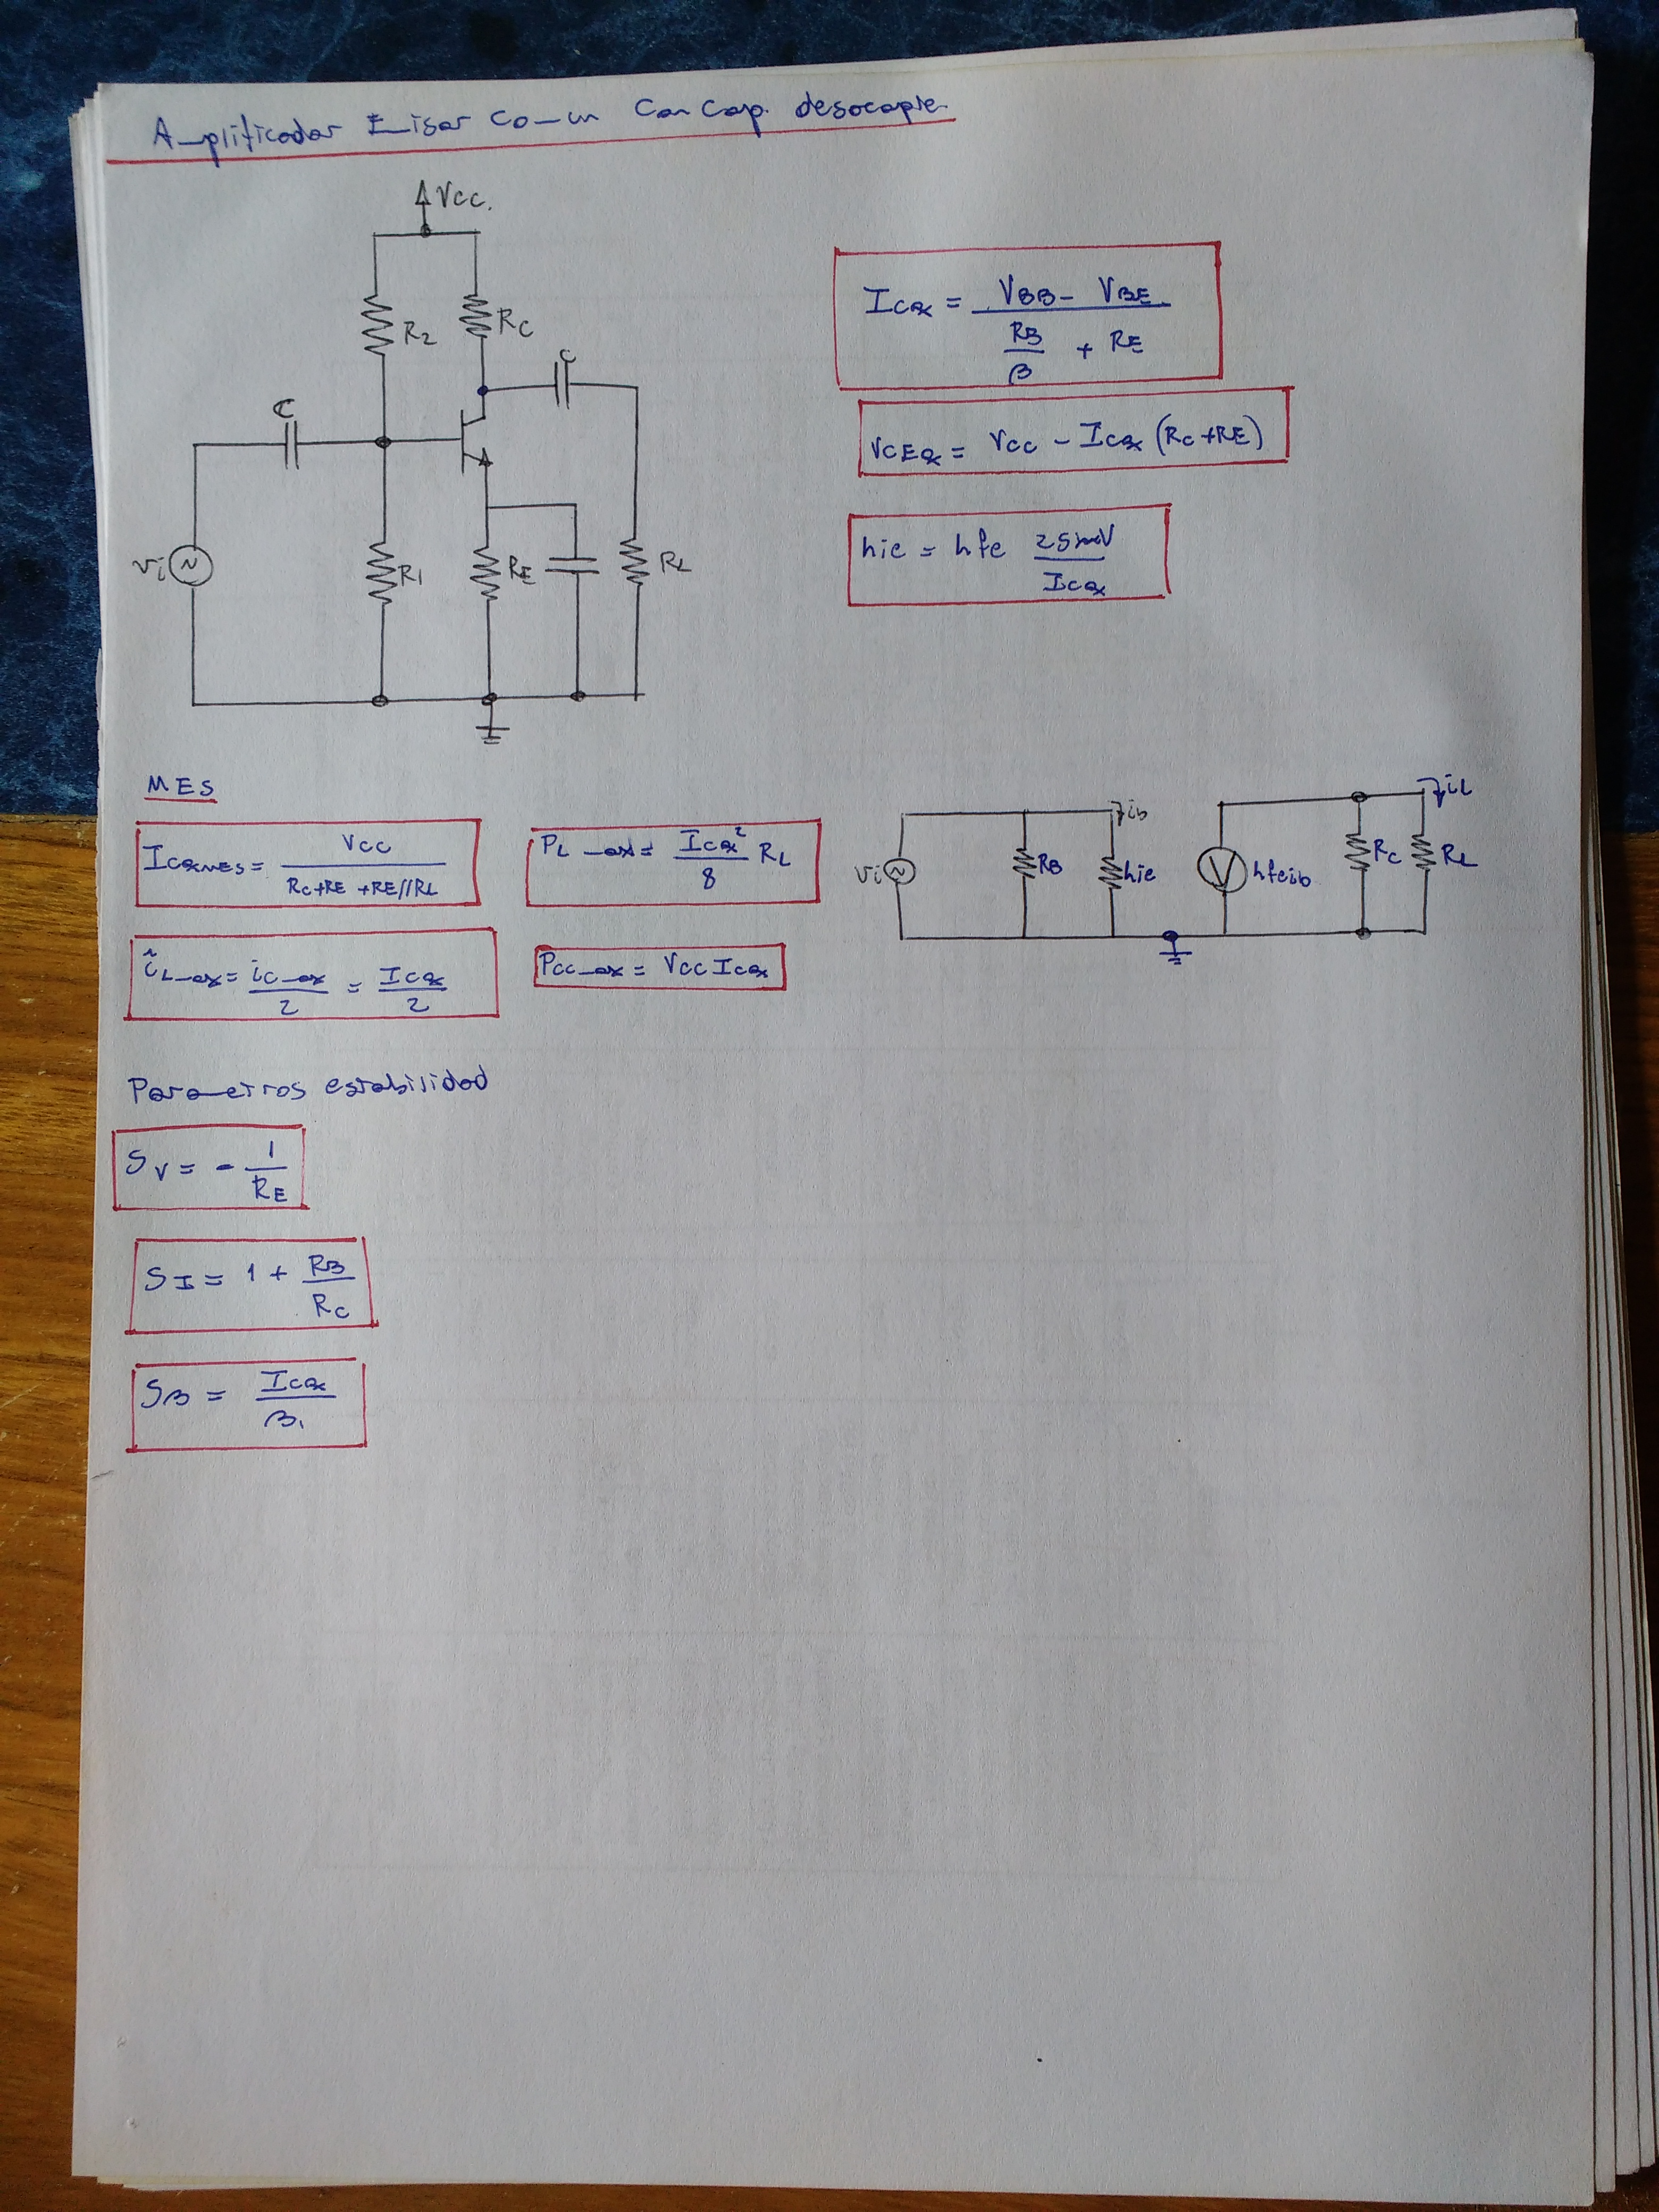 Amplificador Emisor Comun Con Cap. desacople.
Vcc.
R2
Rc
C
C
vi
R1
RE
RL
ICQ = (VBB - VBE) / (RB/β + RE)
VCEQ = VCC - ICQ (RC+RE)
hie = hfe 25mV/ICQ
MES
ICQMES = VCC / (RC+RE +RE//RL)
PLmax = ICQ²/8 RL
îLmax = iCmax/2 = ICQ/2
PCCmax = VCC ICQ
vi
RB
ib
hie
hfeib
RC
RL
iL
Parametros estabilidad
SV = - 1/RE
SI = 1 + RB/RC
Sβ = ICQ/β1